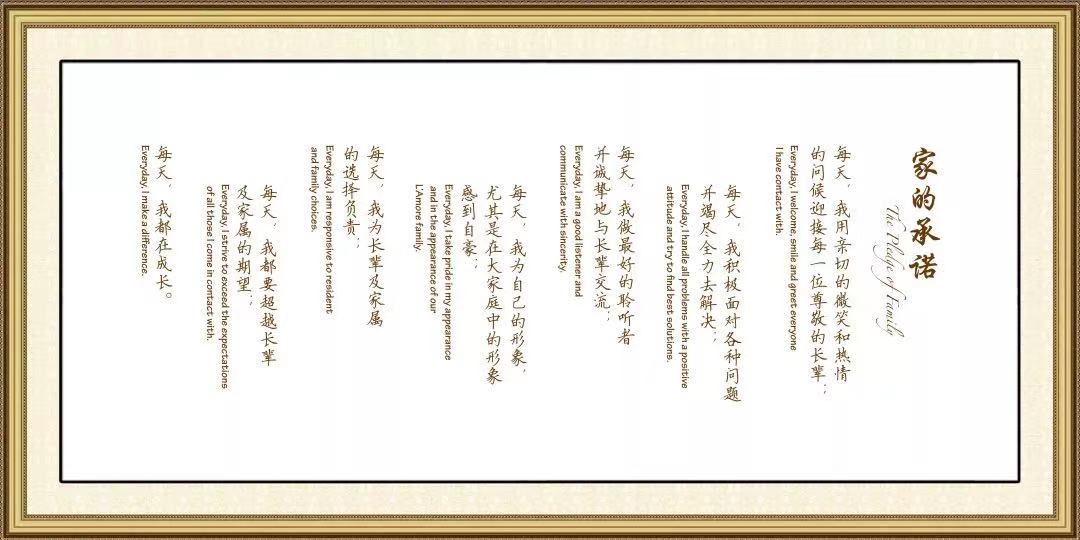 家的承诺
The Pledge of Family
每天，我用亲切的微笑和热情
的问候迎接每一位尊敬的长辈；
Everyday, I welcome, smile and greet everyone
I have contact with.
每天，我积极面对各种问题
并竭尽全力去解决；
Everyday, I handle all problems with a positive
attitude and try to find best solutions.
每天，我做最好的聆听者
并诚挚地与长辈交流；
Everyday, I am a good listener and
communicate with sincerity.
每天，我为自己的形象，
尤其是在大家庭中的形象
感到自豪；
Everyday, I take pride in my appearance
and in the appearance of our
L'Amore family.
每天，我为长辈及家属
的选择负责；
Everyday, I am responsive to resident
and family choices.
每天，我都要超越长辈
及家属的期望；
Everyday, I strive to exceed the expectations
of all those I come in contact with.
每天，我都在成长。
Everyday, I make a difference.